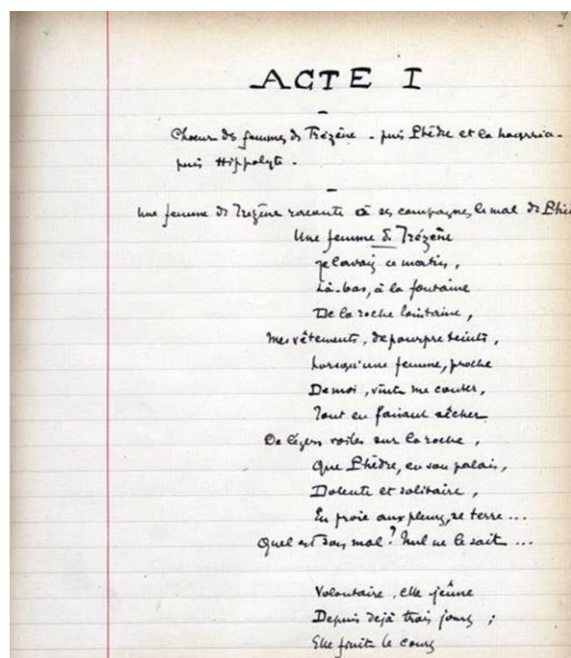 ACTE I
Choeur des femmes de Trézène - puis Phèdre et la nourrice -
puis Hippolyte -
Une femme de Trézène raconte à ses compagnes, le mal de Phè
Une femme de Trézène
Je lavais ce matin,
Là-bas, à la fontaine
De la roche lointaine,
Mes vêtements, de pourpre teints,
Lorsqu'une femme, proche
De moi, vint me conter,
Tout en faisant sécher
De légers voiles sur la roche,
Que Phèdre, en son palais,
Dolente et solitaire,
En proie aux pleurs, se terre ...
Quel est son mal ? Nul ne le sait ...
Volontaire, elle jeûne
Depuis déjà trois jours ;
Elle finit le cours